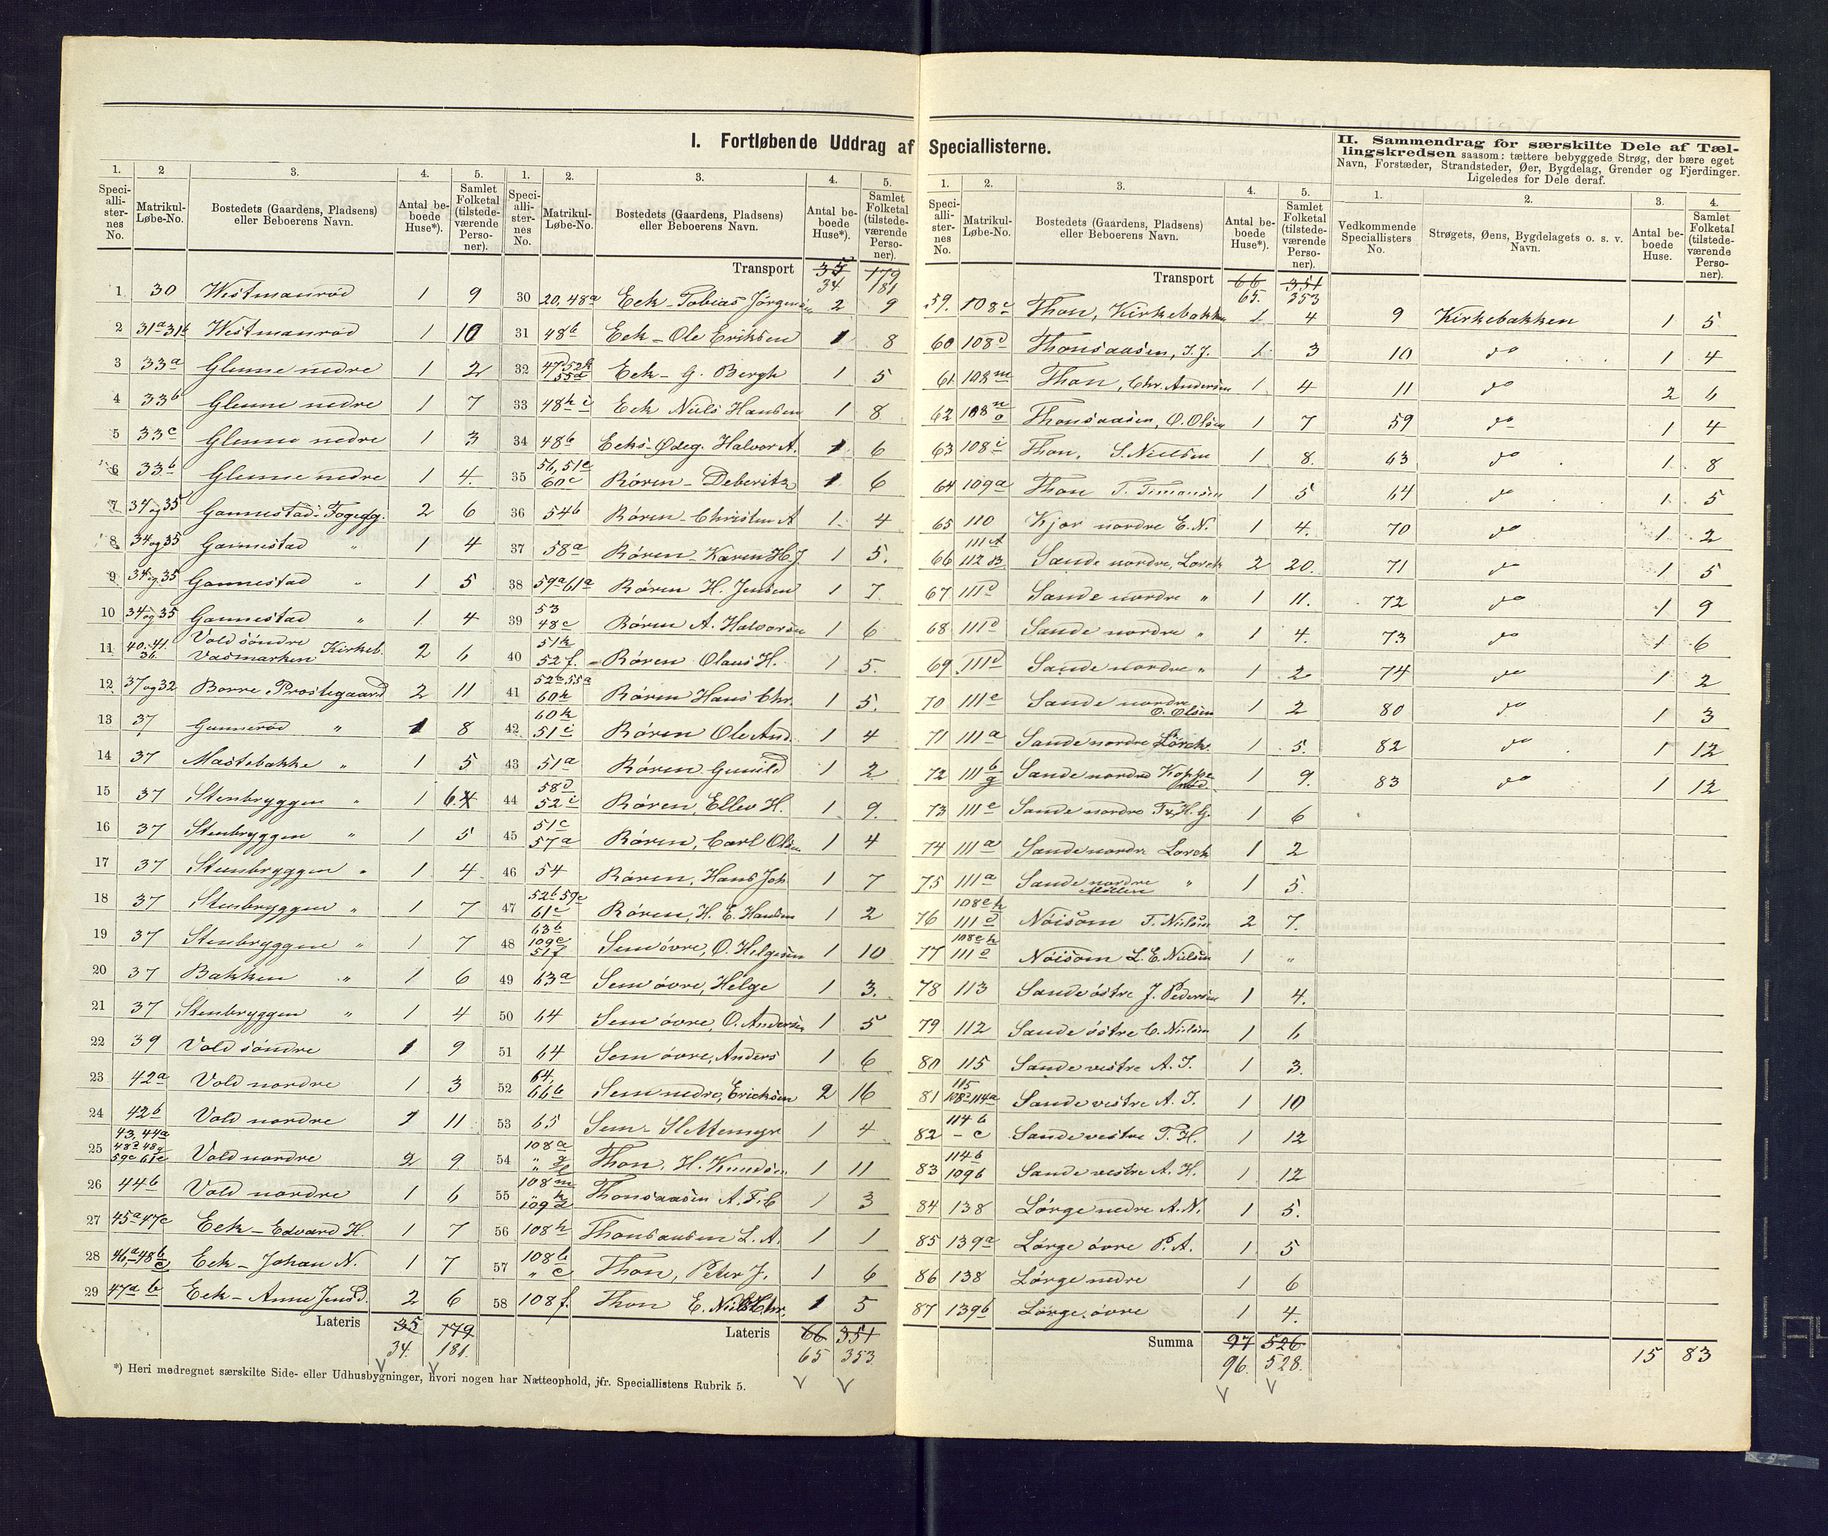 I. Fortløbende Uddrag af Speciallisterne.
1. 2 3. 4. 5.
Speciallisternes No. Matrikul-Løbe-No. Bostedets (Gaardens, Pladsens) eller Beboerens Navn. Antal beboede Huse*). Samlet Folketal (tilstedeværende Personer).
1 30 Westmanrød 1 9
2 31a 31b Westmanrød 1 10
3 33a Glenne nedre 1 2
4 33b Glenne nedre 1 7
5 33c Glenne nedre 1 3
6 33b Glenne nedre 1 4.
7 34 og 35 Gannestad 2 6
8 34 og 35 Gannestad " 1 4
9 34 og 35 Gannestad " 1 5
10 34 og 35 Gannestad " 1 4
11 40. 41. 36 Vold søndre Vasmarken Kirkeb. 2 6
12 37 og 32 Borre Prostegaard 2 11
13 37 Gannerød " 1 8
14 37 Mastebakke " 1 5
15 37 Stenbryggen " 1 6
16 37 Stenbryggen " 1 5
17 37 Stenbryggen " 1 4
18 37 Stenbryggen " 1 7
19 37 Stenbryggen " 1 7
20 37 Bakken " 1 6
21 37 Stenbryggen " 1 4
22 39 Vold søndre 1 9
23 42a Vold nordre 1 3
24 42b Vold nordre 1 11
25 43, 44a 48d 48g 59c 61c Vold nordre 2 9
26 44b Vold nordre 1 6
27 45a 47c Eek - Edvard H. 1 7
28 46a - 48b c Eek - Johan N. 1 7
29 47a b Eek - Anne Jensd. 2 6
Lateris 35 179
34. 181.
*) Heri medregnet særskilte Side- eller Udhusbygninger, hvori nogen har Natteophold, jfr. Speciallistens Rubrik 5.
1. 2. 3. 4. 5.
Speciallisternes No. Matrikul-Løbe-No. Bostedets (Gaardens, Pladsens) eller Beboerens Navn. Antal beboede Huse*). Samlet Folketal (tilstedeværende Personer).
Transport 35 179
34 181
30 20, 48a Eek - Tobias Jørgensen 2 9
31 48b Eek - Ole Eriksen 1 8
32 47d 52k 55c Eek - G. Bergh 1 5
33 48h i Eek Niels Hansen 1 8
34 48b Eeks-Ødeg. Halvor A. 1 6
35 56, 51e 60c Røren - Deberitz 1 6
36 54b Røren - Christen A 1 4
37 58a Røren - Karen H. J. 1 5.
38 59a 61a Røren H. Jensen 1 7
39 53 48c Røren A. Halvorsen 1 6
40 51k 52f. Røren Olaus H. 1 5.
41 52b 55a 60k Røren Hans Chr. 1 5.
42 60k 51i Røren Ole And. 1 4
43 51a Røren Gunild 1 2
44 58d 52i Røren, Ellev H. 1 9.
45 51c 57a Røren, Carl Olsen 1 4
46 54 Røren, Hans Joh. 1 7
47 52b 59c 61c Røren, H. E. Hansen 1 2
48 63b 109e 51f Sem øvre, O. Helgesen 1 10
49 63a Sem øvre, Helge 1 3.
50 64 Sem øvre, O. Andersen 1 5
51 64 Sem øvre, Anders 1 6
52 64, 66b Sem nedre, Ericksen 2 16
53 65 Sem - Slettemyr 1 4
54 108a " g Thon, H. Knudsen 1 11
55 108m " k 109d Thonsaasen A. F. C 1 3
56 108h Thonsaasen L. A. 1 1
57 108b " c Thon, Peter J. 1 6
58 108f. Thon E. Niels Chr. 1 5
Lateris 66 351
65 353
1. 2. 3. 4. 5.
Speciallisternes No. Matrikul-Løbe-No. Bostedets (Gaardens, Pladsens) eller Beboerens Navn. Antal beboede Huse*). Samlet Folketal (tilstedeværende Personer).
Transport 66 351
65. 353
59. 108c Thon, Kirkebakken 1 4
60 108d Thonsaasen, I. J. 1 3
61 108m Thon, Chr. Andersen 1 4
62 108n o Thonsaasen, O. Olsen 1 7
63 108i Thon, S. Nielsen 1 8.
64 109a Thon T. Simonsen 1 5
65 110 Kjær nordre E. N. 1 4.
66 111A 112B. Sande nordre, Lorck 2 20.
67 111d Sande nordre " 1 11.
68 111d Sande nordre " 1 4.
69 111d Sande nordre " 1 2
70 111e Sande nordre O. Olsen 1 2
71 111a Sande nordre Lorck. 1 5.
72 111b g Sande nordre 1 9.
73 111e Sande nordre T. H. G. 1 6
74 111a Sande nordre Lorck 1 2
75 111a Sande nordre Møllen " 1 5
76 108ek 111d Nøisom T. Nielsen 2 7.
77 108ek 111d Nøisom L. E. Nielsen 1 "
78 113 Sande østre J. Pedersen 1 4.
79 112 Sande østre C. Nielsen 1 6
80 115 Sande vestre A. I. 1 3.
81 115 108d 114a Sande vestre A. I. 1 10
82 114b - c Sande vestre T. H. 1 12
83 114b 109b Sande vestre A. H. 1 12
84 138 Lørge nedre A. N. 1 5.
85 139a Lørge øvre P. A. 1 5
86 138 Lørge nedre 1 6
87 139b Lørge øvre 1 4.
Summa 97 526
96. 528.
II. Sammendrag for særskilte Dele af Tællingskredsen saasom: tættere bebyggede Strøg, der bære eget Navn, Forstæder, Strandsteder, Øer, Bygdelag, Grender og Fjerdinger. Ligeledes for Dele deraf.
1. 2. 3. 4.
Vedkommende Speciallisters No. Strøgets, Øens, Bygdelagets o. s. v. Navn. Antal beboede Huse. Samlet Folketal (tilstedeværende Personer).
9 Kirkebakken 1 5
10 do 1 4
11 do 2 6
59 do 1 4
63 do 1 8
64 do 1 5
70 do 1 2
71 do 1 5
72 do 1 9
73 do 1 6
74 do 1 2
80 do 1 3
82 do 1 12
83 do 1 12
15 83